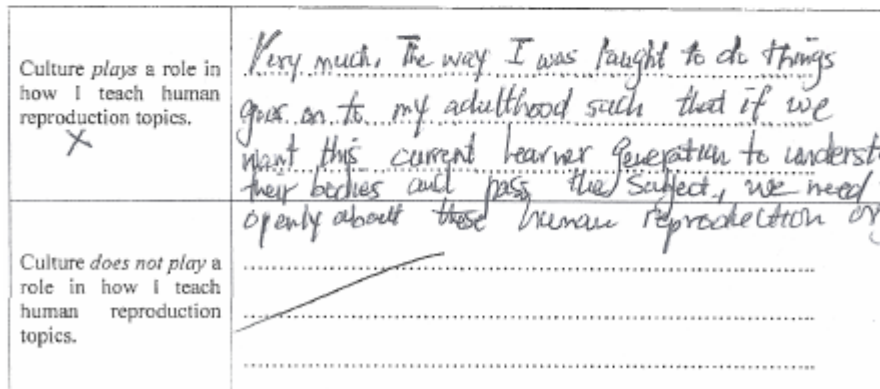 Culture plays a role in
how I teach human
reproduction topics.
X
Very much, The way I was taught to do things
goes on to my adulthood such that if we
want this current learner generation to underst
their bodies and pass the subject, we need
openly about these human reproduction org
Culture does not play a
role in how I teach
human reproduction
topics.